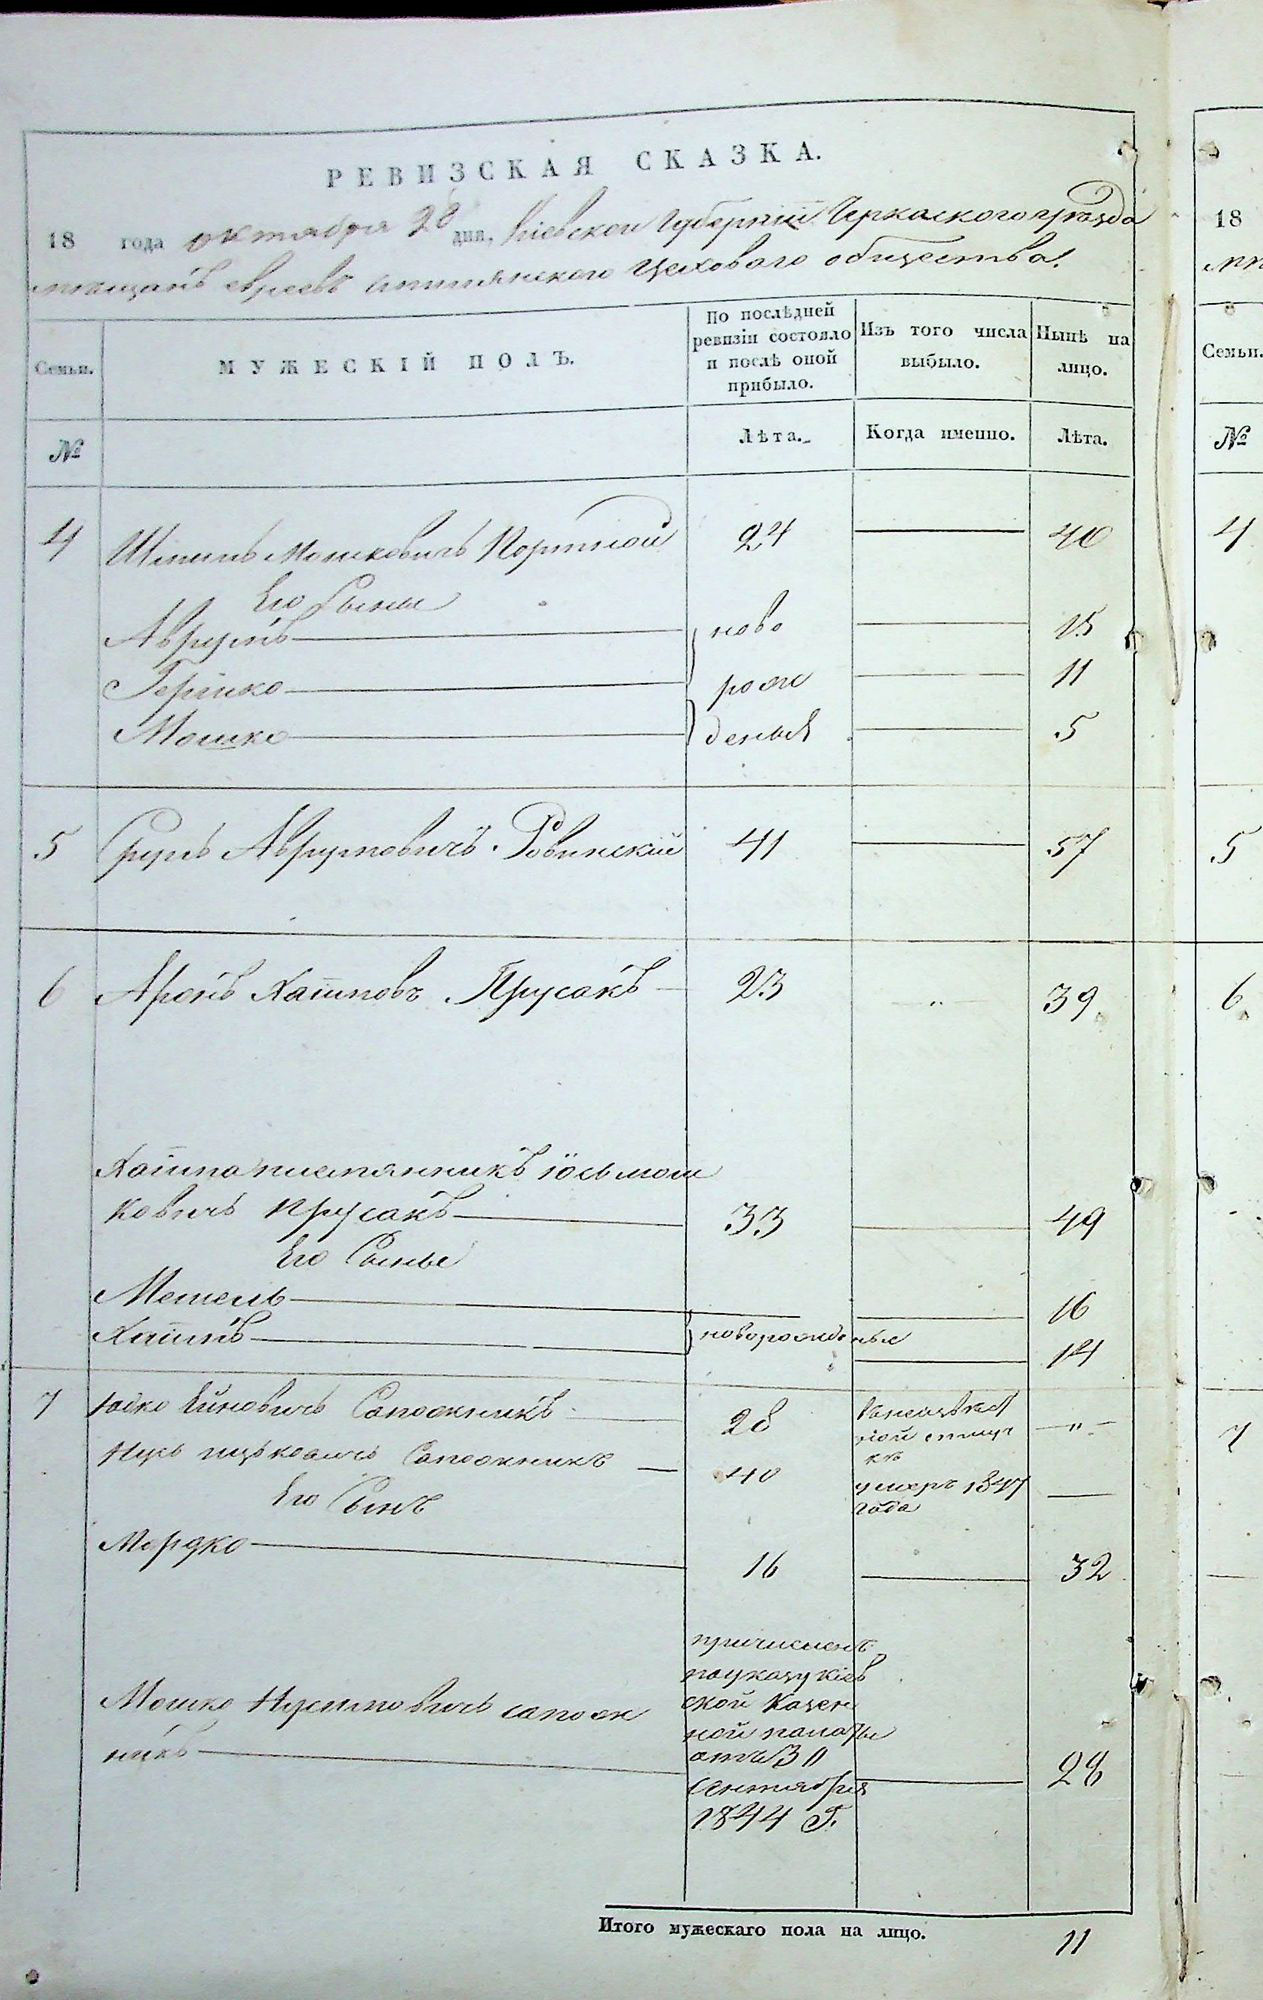 РЕВИЗСКАЯ СКАЗКА.
18 года октября 28 дня, Кіевской Губерніи Черкаского уѣзда
мѣщанъ евреевъ Смѣлянского Цеховаго общества.
Семьи. МУЖЕСКІЙ ПОЛЪ. По послѣдней ревизіи состояло и послѣ оной прибыло. Изъ того числа выбыло. Нынѣ на лицо.
№ Лѣта. Когда именно. Лѣта.
4 Мошковичъ Портной 24 40
Его Сынья
Аврумъ ново 15
Гершко рож 11
Мошко деныя 5
5 Сруль Аврумовичъ Ровинскій 41 57
6 Аронъ Хаимовъ Прусакъ 23 " 39
Хаима племянникъ Іось мош
ковичъ Прусакъ 33 49
Его Сынья
16
Хаимъ новорожденые 14
7 Сапожникъ 28 — " —
Сапожникъ 40 умеръ 1847
Его Сынъ года
Мордко 16 32
причисленъ
по указу кіев
ской Казен
Мошко сапож ной палаты
никъ отъ 30 28
Сентября
1844 Г.
Итого мужескаго пола на лицо. 11
18
Семьи.
№
4
5
6
7